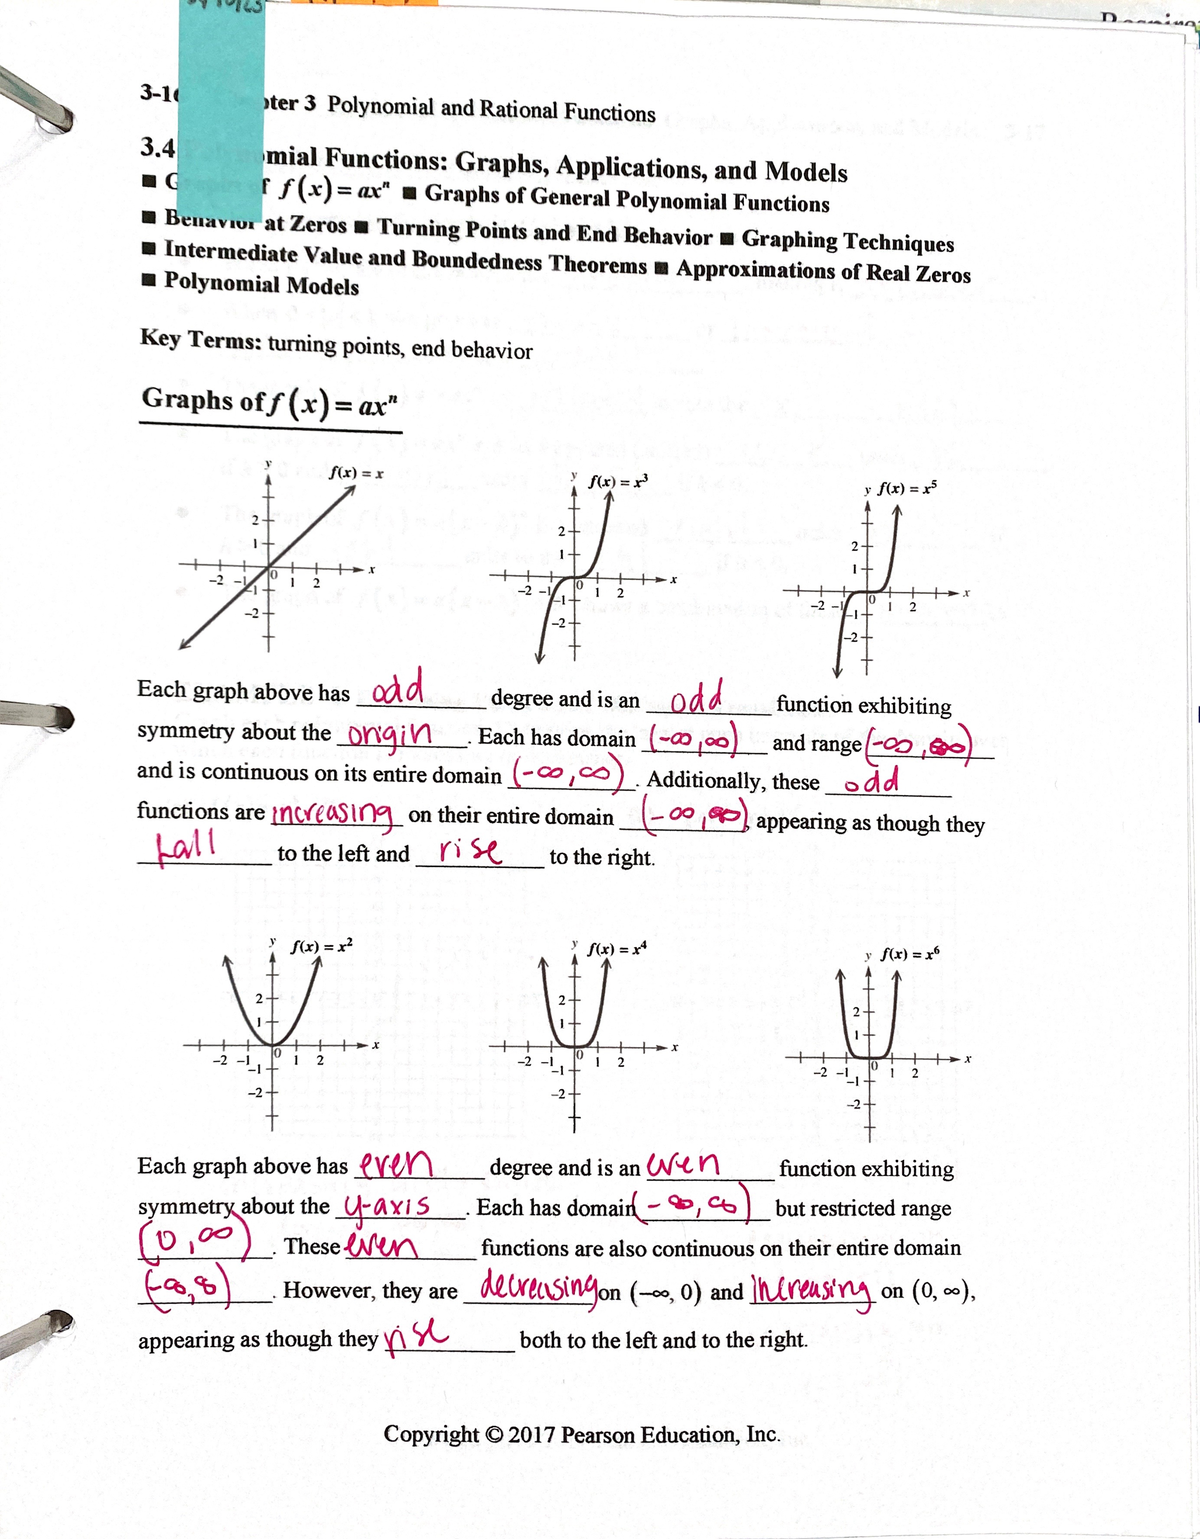 3-1
pter 3 Polynomial and Rational Functions
3.4 mial Functions: Graphs, Applications, and Models
■ G f f(x) = axⁿ ■ Graphs of General Polynomial Functions
■ Behavior at Zeros ■ Turning Points and End Behavior ■ Graphing Techniques
■ Intermediate Value and Boundedness Theorems ■ Approximations of Real Zeros
■ Polynomial Models
Key Terms: turning points, end behavior
Graphs of f(x) = axⁿ
y f(x) = x
2
1
-2 -1 0 1 2 x
-1
-2
y f(x) = x³
2
1
-2 -1 0 1 2 x
-1
-2
y f(x) = x⁵
2
1
-2 -1 0 1 2 x
-1
-2
Each graph above has odd degree and is an odd function exhibiting
symmetry about the origin. Each has domain (-∞,∞) and range (-∞,∞)
and is continuous on its entire domain (-∞,∞). Additionally, these odd
functions are increasing on their entire domain (-∞,∞), appearing as though they
fall to the left and rise to the right.
y f(x) = x²
2
1
-2 -1 0 1 2 x
-1
-2
y f(x) = x⁴
2
1
-2 -1 0 1 2 x
-1
-2
y f(x) = x⁶
2
1
-2 -1 0 1 2 x
-1
-2
Each graph above has even degree and is an even function exhibiting
symmetry about the y-axis. Each has domain (-∞,∞) but restricted range
(0,∞). These even functions are also continuous on their entire domain
(-∞,∞). However, they are decreasing on (-∞, 0) and increasing on (0, ∞),
appearing as though they rise both to the left and to the right.
Copyright © 2017 Pearson Education, Inc.